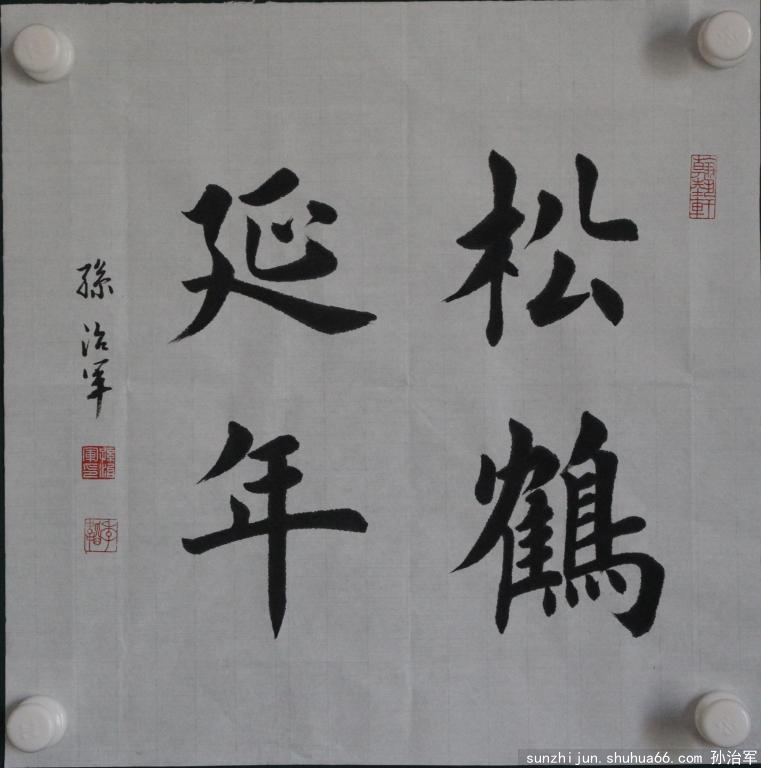 松鶴
延年
孫治军
sunzhijun.shuhua66.com 孙治军